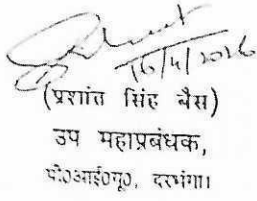 16/4/2026
(प्रशांत सिंह बैस)
उप महाप्रबंधक,
पी०आई०यू०, दरभंगा।